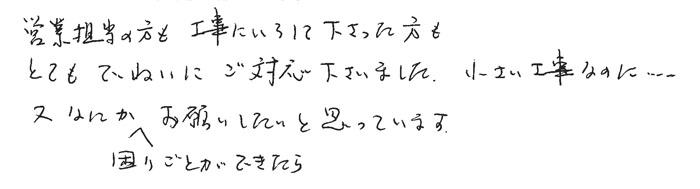 営業担当の方も 工事にいらして下さった方も
とても ていねいに ご対応下さいました. 小さい工事なのに……
又 なにか お願いしたいと思っています.
困りごとができたら